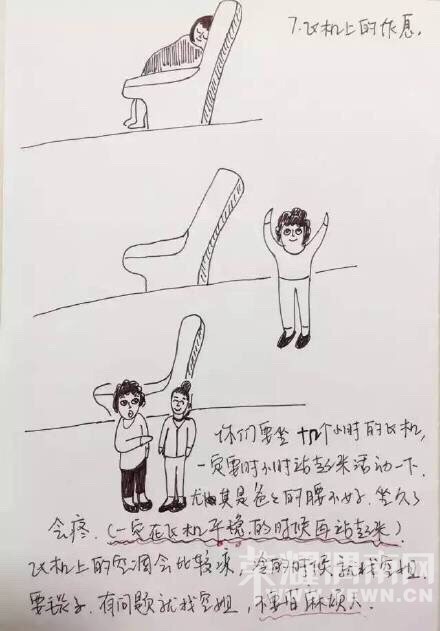 7.飞机上的作息.
你们要坐十几个小时的飞机,
一定要时不时站起来活动一下.
尤其是爸爸的腰不好.坐久了
会疼.(一定在飞机平稳的时候再站起来)
飞机上的空调会比较凉,冷的时候就找空姐
要毯子.有问题就找空姐,不要怕麻烦人.
荣耀渭南网